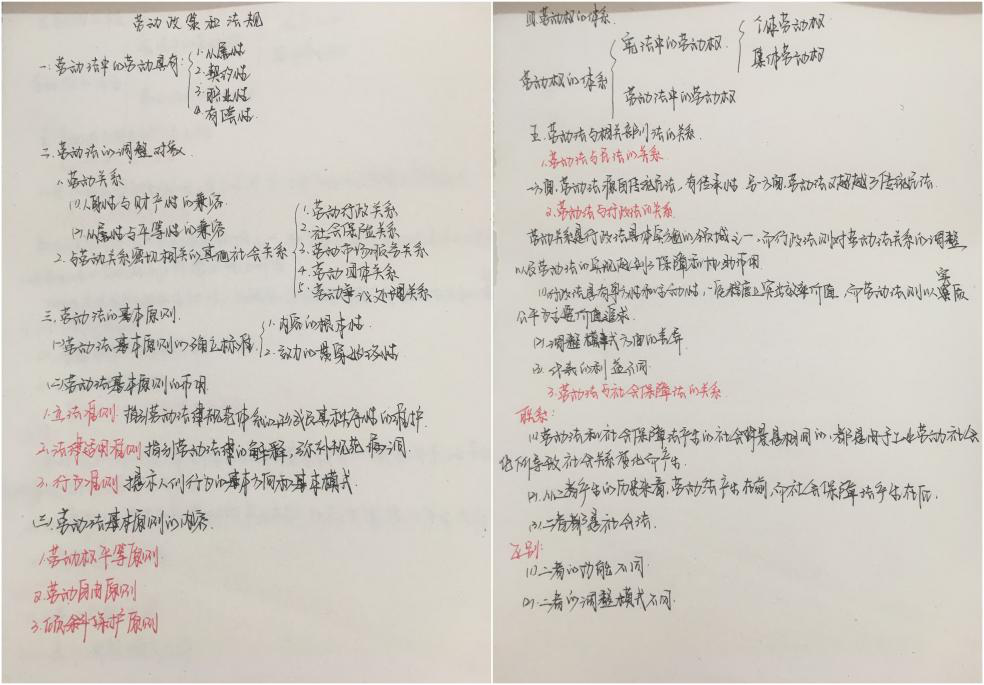 劳动政策和法规
一.劳动法中的劳动具有:
1.从属性
2.契约性
3.职业性
4.有偿性
二.劳动法的调整对象
1.劳动关系
(1)人身性与财产性的兼容
(2).从属性与平等性的兼容
2.与劳动关系密切相关的其他社会关系
1.劳动行政关系
2.社会保险关系
3.劳动市场服务关系
4.劳动团体关系
5.劳动争议处理关系
三.劳动法的基本原则.
(一)劳动法基本原则的确立标准
1.内容的根本性
2.效力的贯穿始终性
(二)劳动法基本原则的作用
1.立法准则:指引劳动法律规范体系的形成及其秩序性的维护
2.法律适用准则:指引劳动法律的解释,弥补规范漏洞
3.行为准则:提示人们行为的基本方向和基本模式
(三).劳动法基本原则的内容
1.劳动权平等原则
2.劳动自由原则
3.倾斜保护原则
四.劳动权的体系
劳动权的体系
宪法中的劳动权
个体劳动权
集体劳动权
劳动法中的劳动权
五.劳动法与相关部门法的关系.
1.劳动法与民法的关系
一方面,劳动法源自传统民法,有传承性 另一方面,劳动法又超越了传统民法.
2.劳动法与行政法的关系
劳动关系是行政法具体实施的领域之一.而行政法则对劳动法关系的调整
以及劳动法的实现起到了保障和协助作用
(1)行政法具有单方性和主动性,一定程度上突出效率价值,而劳动法则以实质
公平为主要价值追求.
(2).调整模式方面的差异
(3).体现的利益不同.
3.劳动法与社会保障法的关系
联系:
(1)劳动法和社会保障法产生的社会背景是相同的.都是由于工业劳动社会
化所导致社会关系变化而产生.
(2).从二者产生的历史来看,劳动法产生在前,而社会保障法产生在后.
(3).二者都是社会法.
区别:
(1)二者的功能不同
(2).二者的调整模式不同.